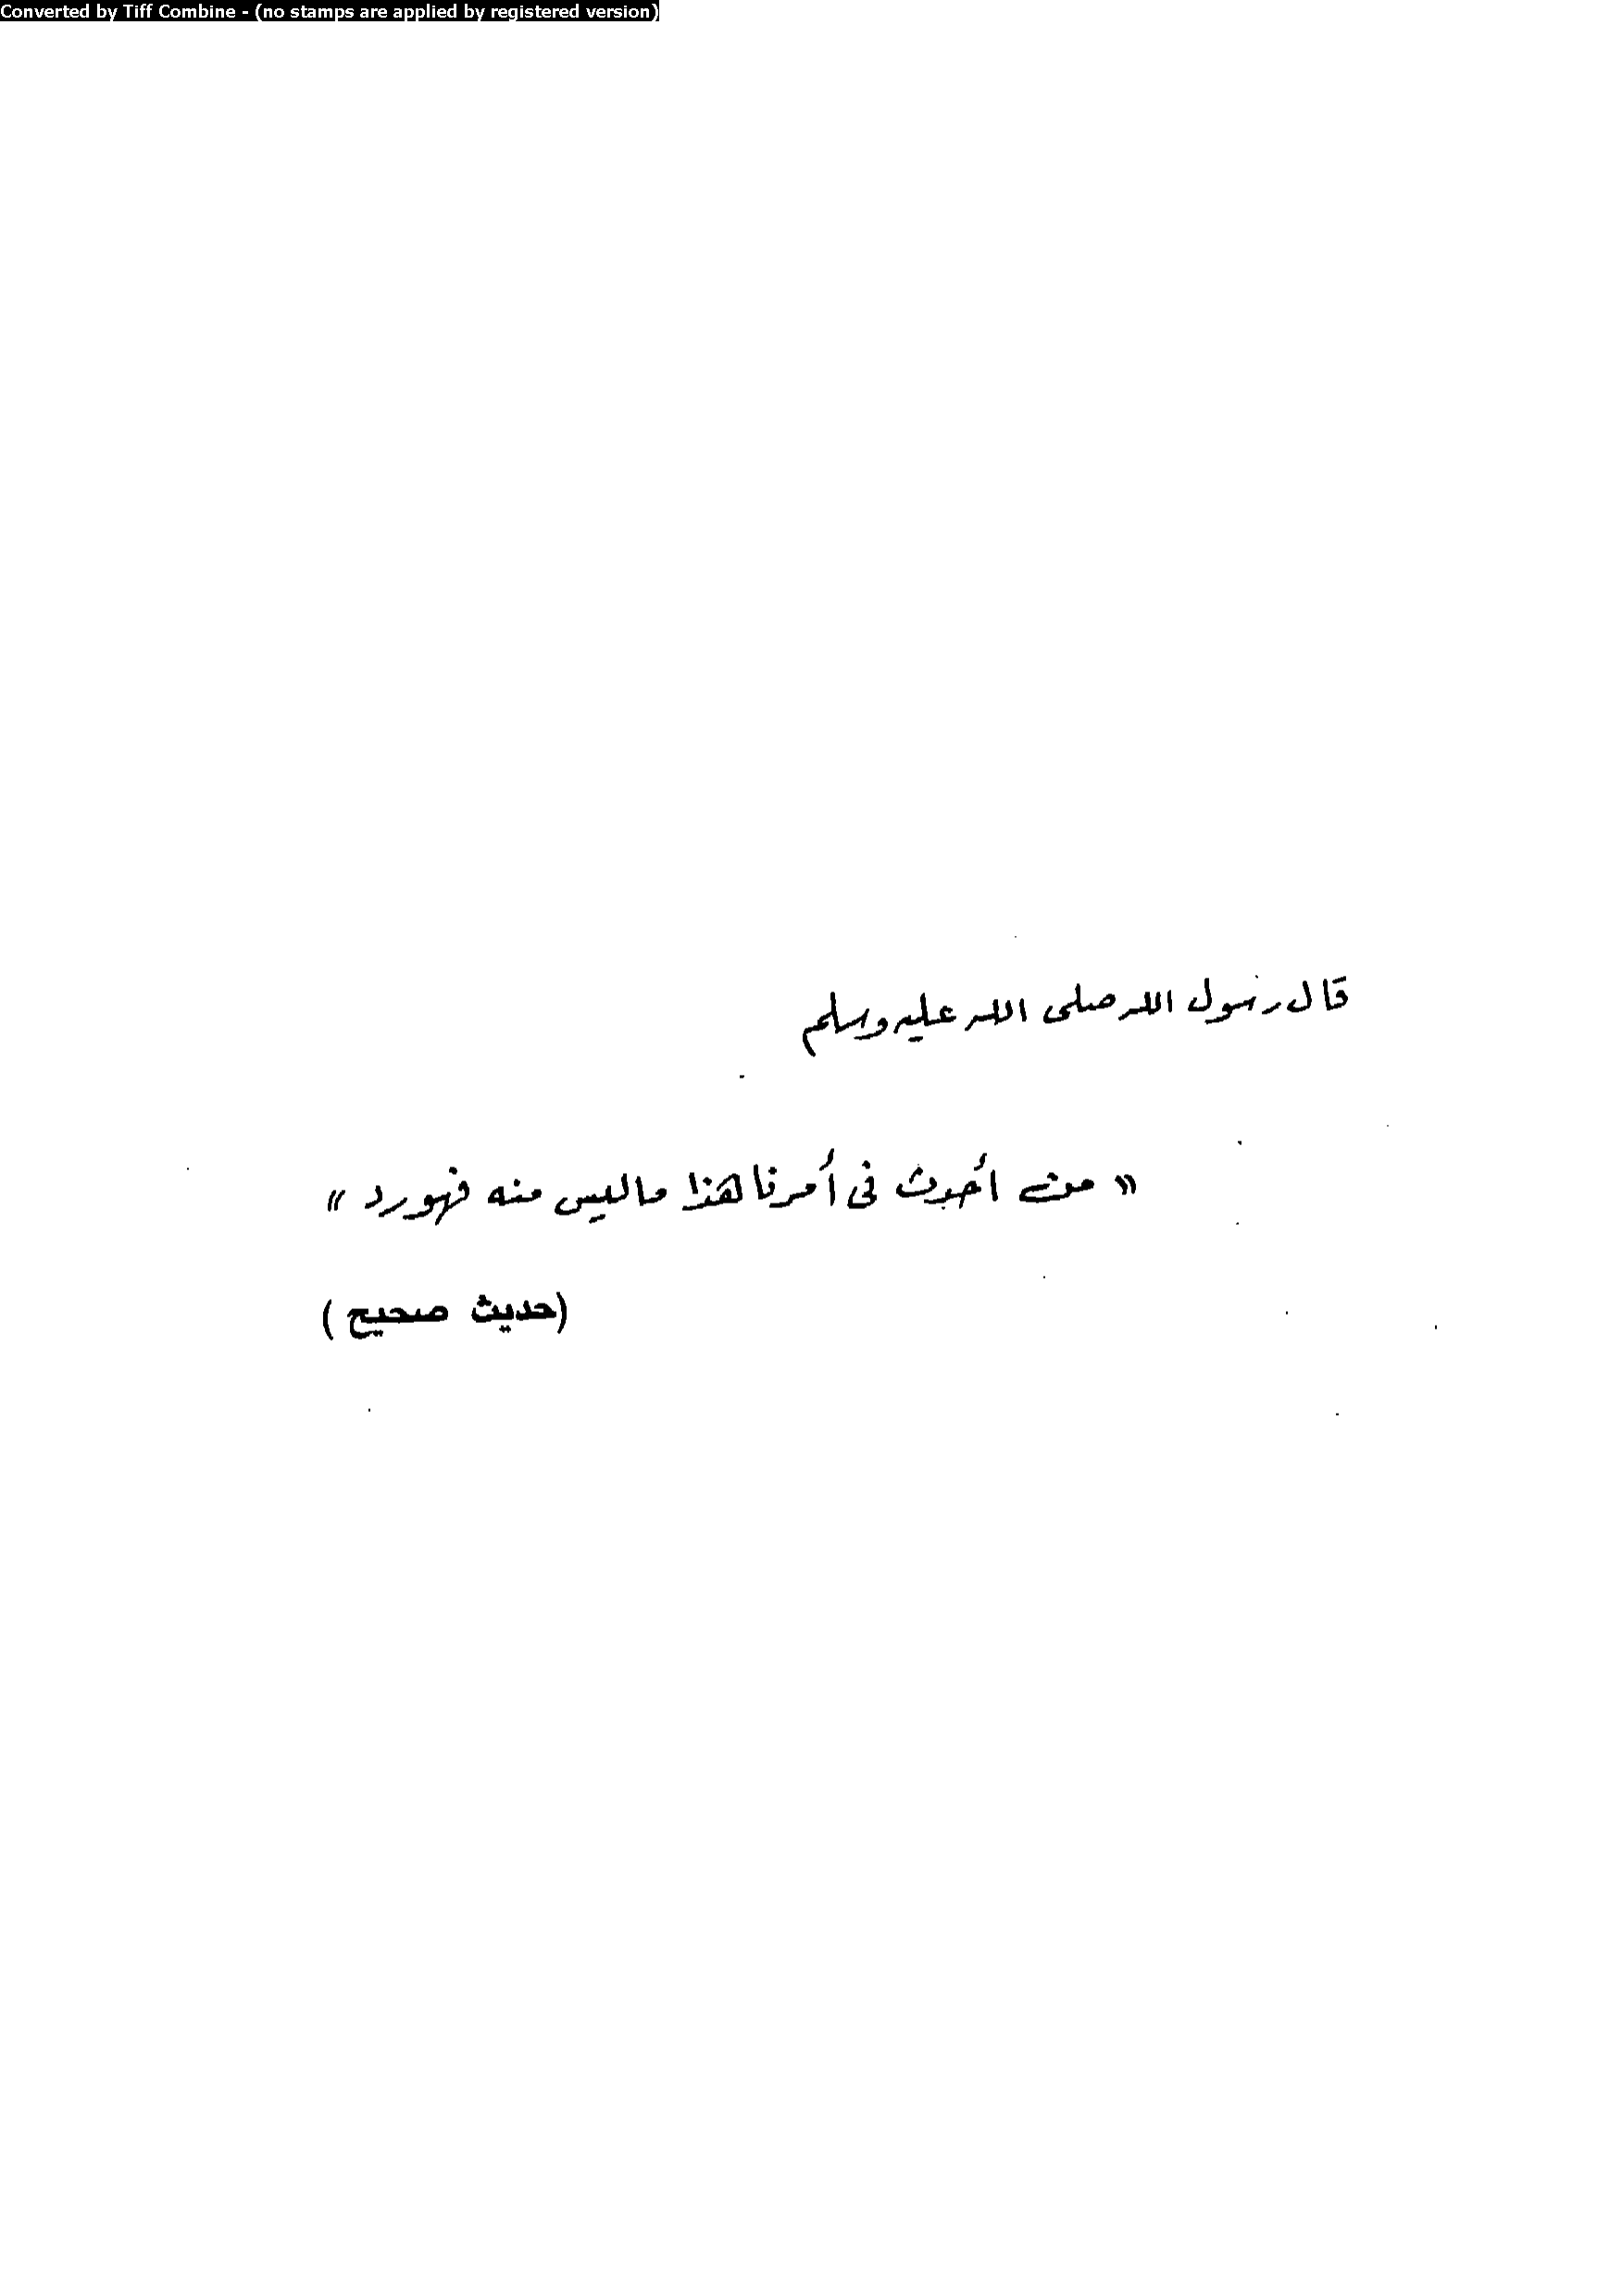 Converted by Tiff Combine - (no stamps are applied by registered version)
قال رسول الله صلى الله عليه وسلم
« من أحدث فى أمرنا هذا ماليس منه فهورد »
(حديث صحيح )